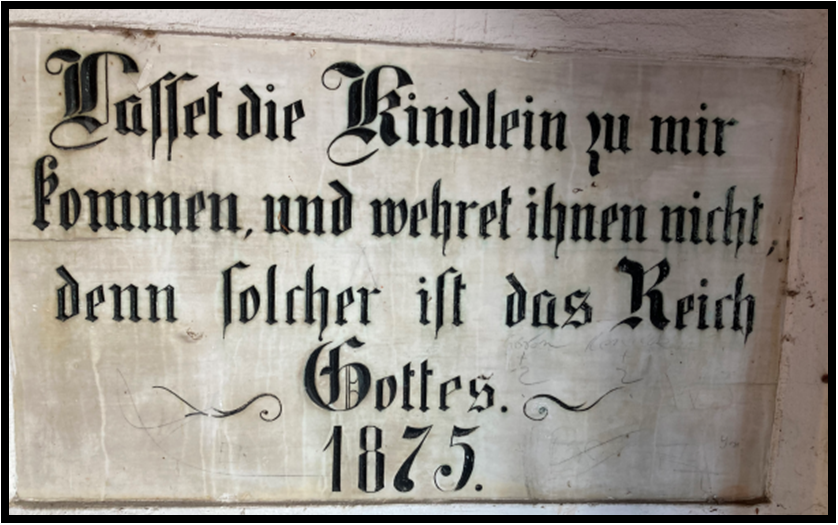 Lasset die Kindlein zu mir
kommen, und wehret ihnen nicht,
denn solcher ist das Reich
Gottes.
1875.